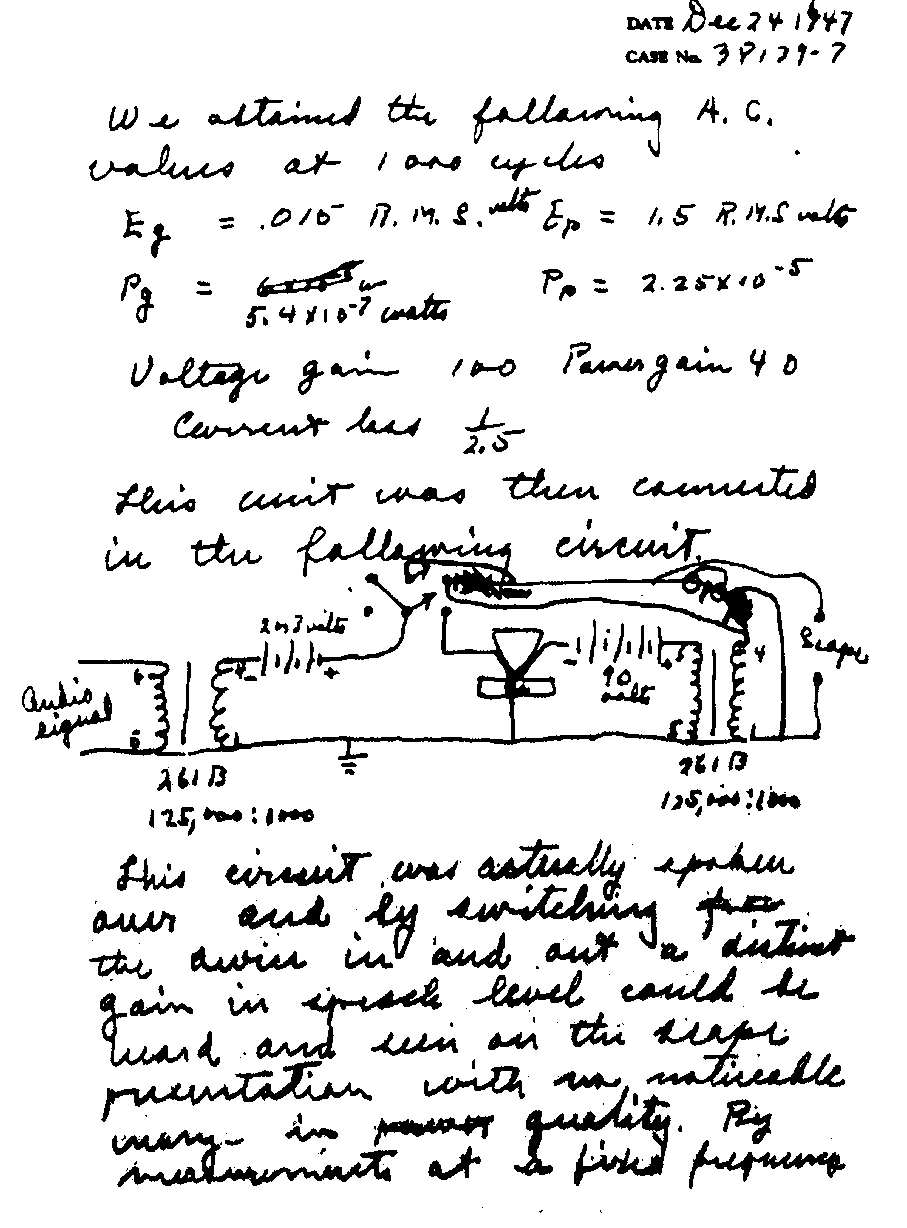 DATE Dec 24 1947
CASE No. 38139-7
We obtained the following A. C.
values at 1000 cycles
Eg = .015 R. M. S. volts Ep = 1.5 R.M.S volts
Pg = w Pp = 2.25 x 10-5
5.4 x 10-7 watts
Voltage gain 100 Power gain 40
Current loss 1/2.5
This unit was then connected
in the following circuit.
volts
Scope
Audio
signal
90
volts
261 B
125,000:1000
261 B
125,000:1000
This circuit was actually spoken
over and by switching
the device in and out a distinct
gain in speech level could be
heard and seen on the scope
presentation with no noticeable
change in quality. By
measurements at a fixed frequency